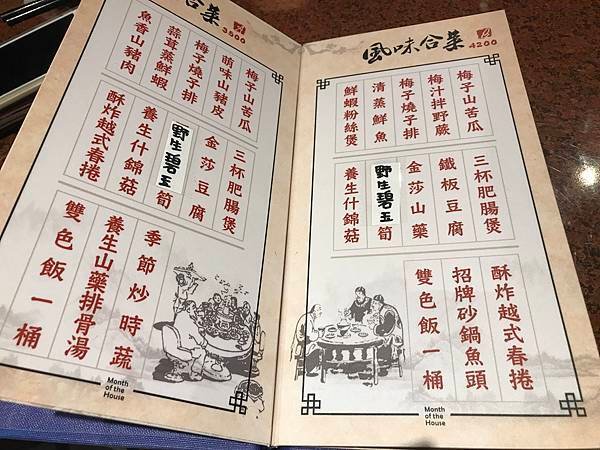 合菜
3500
梅子山苦瓜
萌味山豬皮
梅子燒子排
蒜茸蒸鮮蝦
魚香山豬肉
三杯肥腸煲
金莎豆腐
野生碧玉筍
養生什錦菇
酥炸越式春捲
季節炒時蔬
養生山藥排骨湯
雙色飯一桶
Month
of the
House
風味合菜
4200
梅子山苦瓜
梅汁拌野蕨
梅子燒子排
清蒸鮮魚
鮮蝦粉絲煲
三杯肥腸煲
鐵板豆腐
金莎山藥
野生碧玉筍
養生什錦菇
酥炸越式春捲
招牌砂鍋魚頭
雙色飯一桶
Month
of the
House